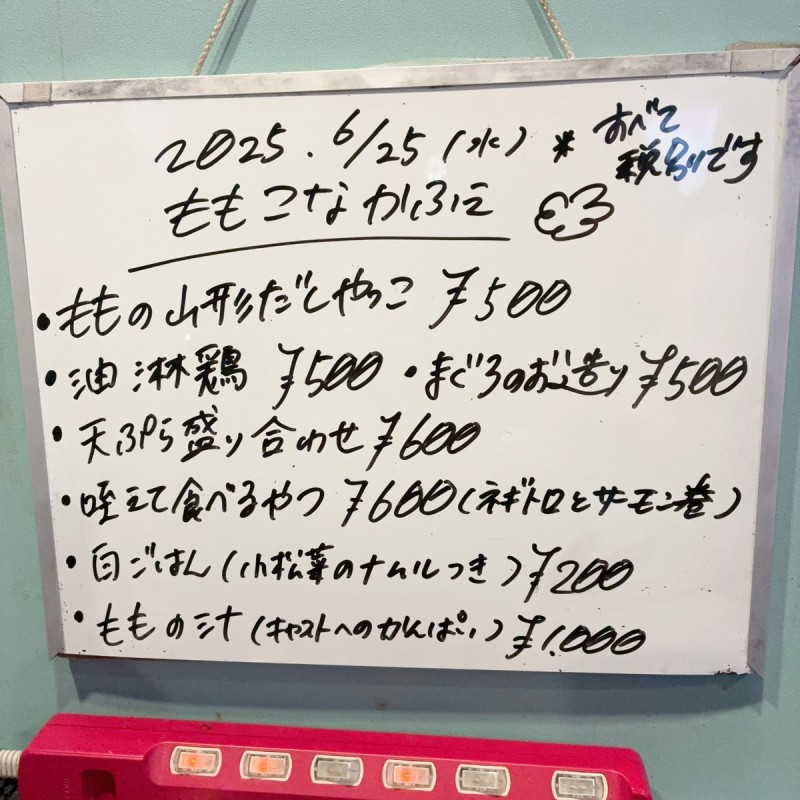 2025.6/25(水) * すべて
税別です
ももこなかふぇ
・ももの山形だしやっこ ¥500
・油淋鶏 ¥500 ・まぐろのお造り ¥500
・天ぷら盛り合わせ ¥600
・咥えて食べるやつ ¥600(ネギトロとサーモン巻)
・白ごはん(小松菜のナムルつき)¥200
・ももの汁(キャストへのかんぱい)¥1.000